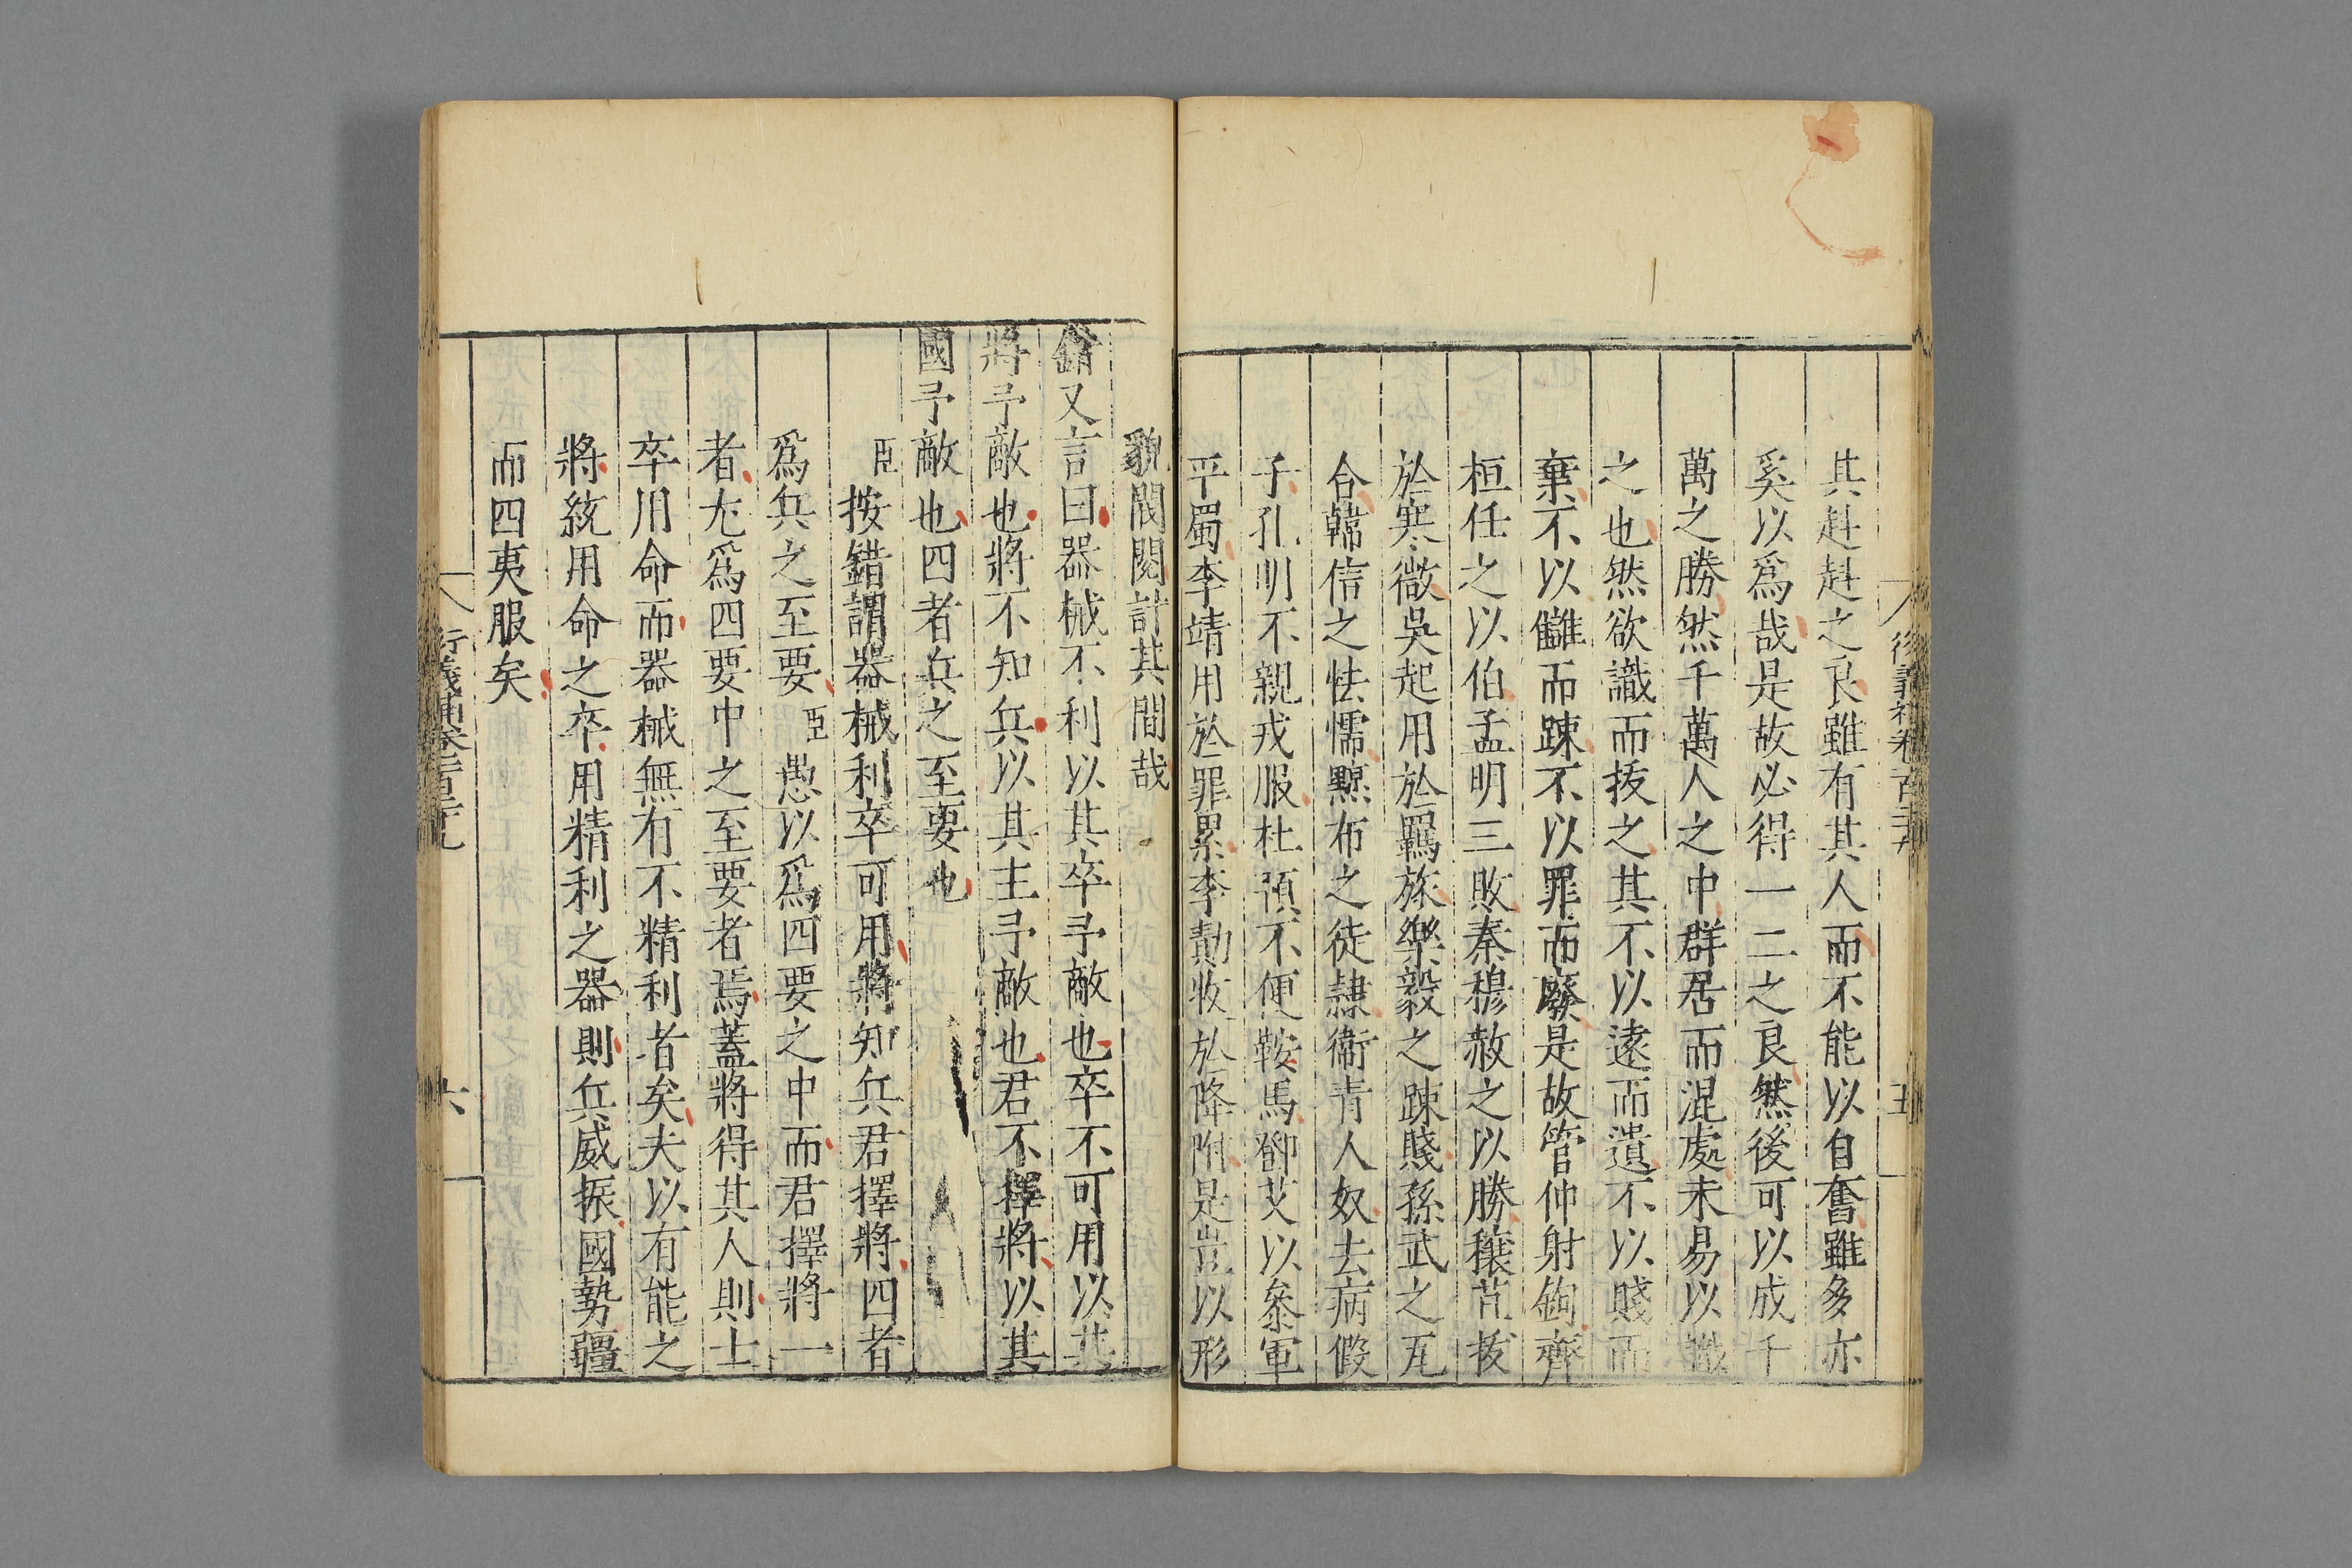 其赳赳之良雖有其人而不能以自奮雖多亦
奚以爲哉是故必得一二之良然後可以成千
萬之勝然千萬人之中群居而混處未易以識
之也然欲識而抜之其不以遠而遺不以賤而
棄不以讎而踈不以罪而廢是故管仲射鉤齊
桓任之以伯孟明三敗秦穆赦之以勝穰苴拔
於寒微吳起用於羈旅樂毅之踈賤孫武之瓦
合韓信之怯懦黥布之徒隸衞青人奴去病假
子孔明不親戎服杜預不便鞍馬鄧艾以叅軍
平蜀李靖用於罪累李勣收於降附是豈以形
貌閥閱計其間哉
錯又言曰器械不利以其卒予敵也卒不可用以其
將予敵也將不知兵以其主予敵也君不擇將以其
國予敵也四者兵之至要也
臣按錯謂器械利卒可用將知兵君擇將四者
爲兵之至要臣愚以爲四要之中而君擇將一
者尤爲四要中之至要者焉蓋將得其人則士
卒用命而器械無有不精利者矣夫以有能之
將統用命之卒用精利之器則兵威振國勢疆
而四夷服矣
衍義補卷一百二十九
六
五